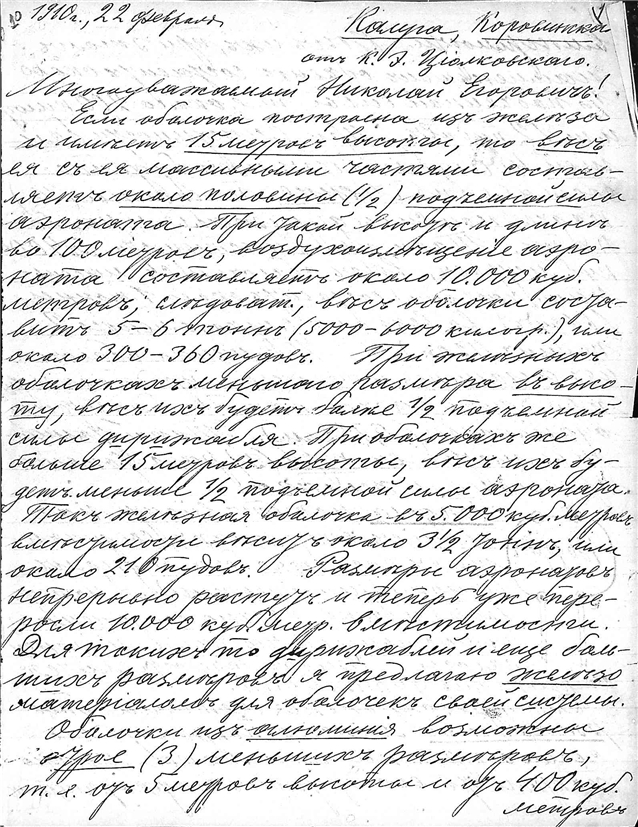 1910г., 22 февраля
Калуга, Коровинская
отъ К. Э. Ціолковскаго.
Многоуважаемый Николай Егоровичъ!
Если оболочка построена изъ желѣза
и имѣетъ 15 метровъ высоты, то вѣсъ
ея съ ея массивными частями состав-
ляетъ около половины (1/2) подъемной силы
аэроната. При такой высотѣ и длинѣ
во 100 метровъ, воздухоизмѣщеніе аэро-
ната составляетъ около 10.000 куб.
метровъ; слѣдоват., вѣсъ оболочки соста-
витъ 5–6 тоннъ (5000–6000 килогр.), или
около 300–360 пудовъ. При желѣзныхъ
оболочкахъ меньшаго размѣра въ высо-
ту, вѣсъ ихъ будетъ болѣе 1/2 подъемной
силы дирижабля. При оболочкахъ же
больше 15 метровъ высоты, вѣсъ ихъ бу-
детъ меньше 1/2 подъемной силы аэроната.
Такъ желѣзная оболочка въ 5.000 куб. метровъ
вмѣстимости вѣситъ около 3 1/2 тоннъ, или
около 210 пудовъ. Размѣры аэронатовъ
непрерывно растутъ и теперь уже пере-
росли 10.000 куб. метр. вмѣстимости.
Для такихъ то дирижаблей и еще боль-
шихъ размѣровъ я предлагаю желѣзо
матеріаломъ для оболочекъ своей системы.
Оболочки изъ алюминія возможны
втрое (3) меньшихъ размѣровъ,
т. е. отъ 5 метровъ высоты и отъ 400 куб.
метровъ